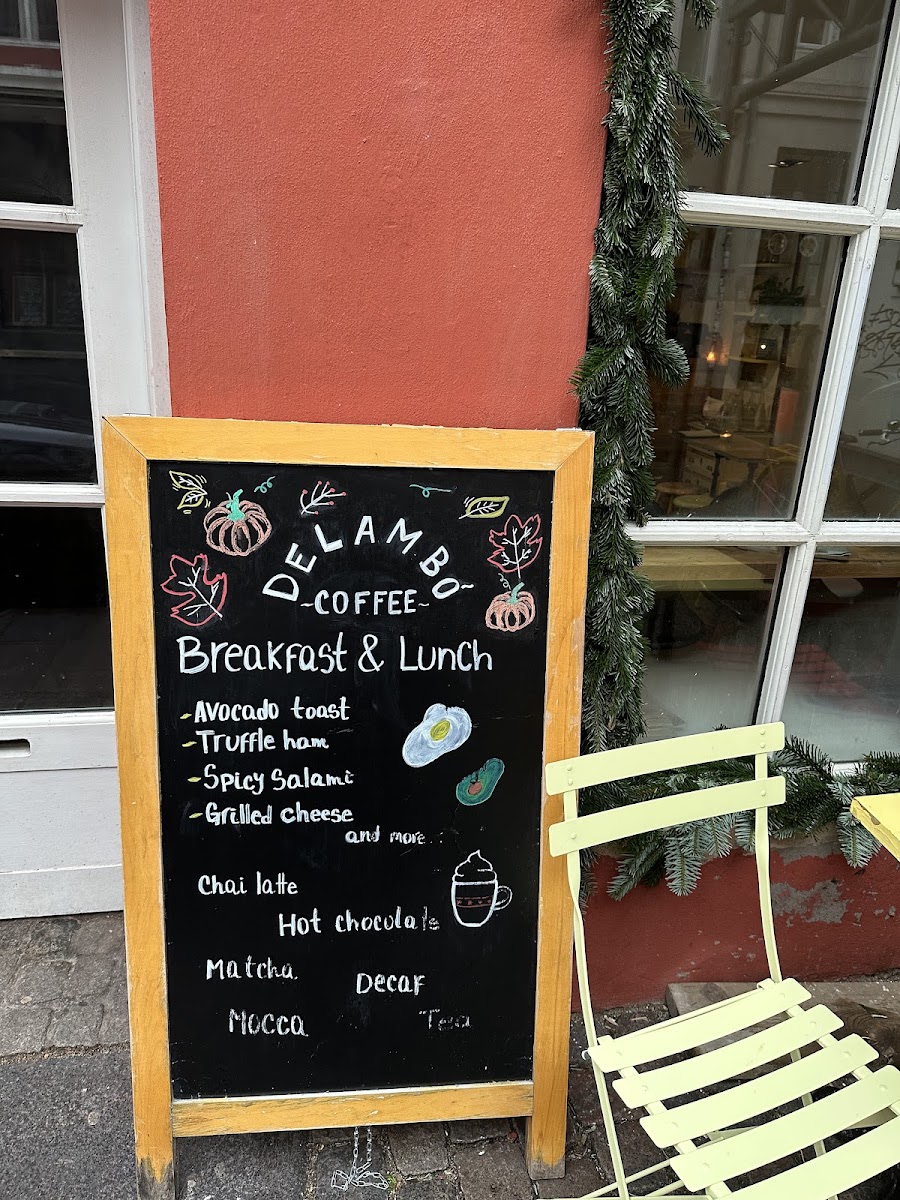 DELAMBO
~COFFEE~
Breakfast & Lunch
-Avocado toast
-Truffle ham
-Spicy Salami
-Grilled cheese
and more...
Chai latte
Hot chocolate
Matcha
Decaf
Mocca
Tea